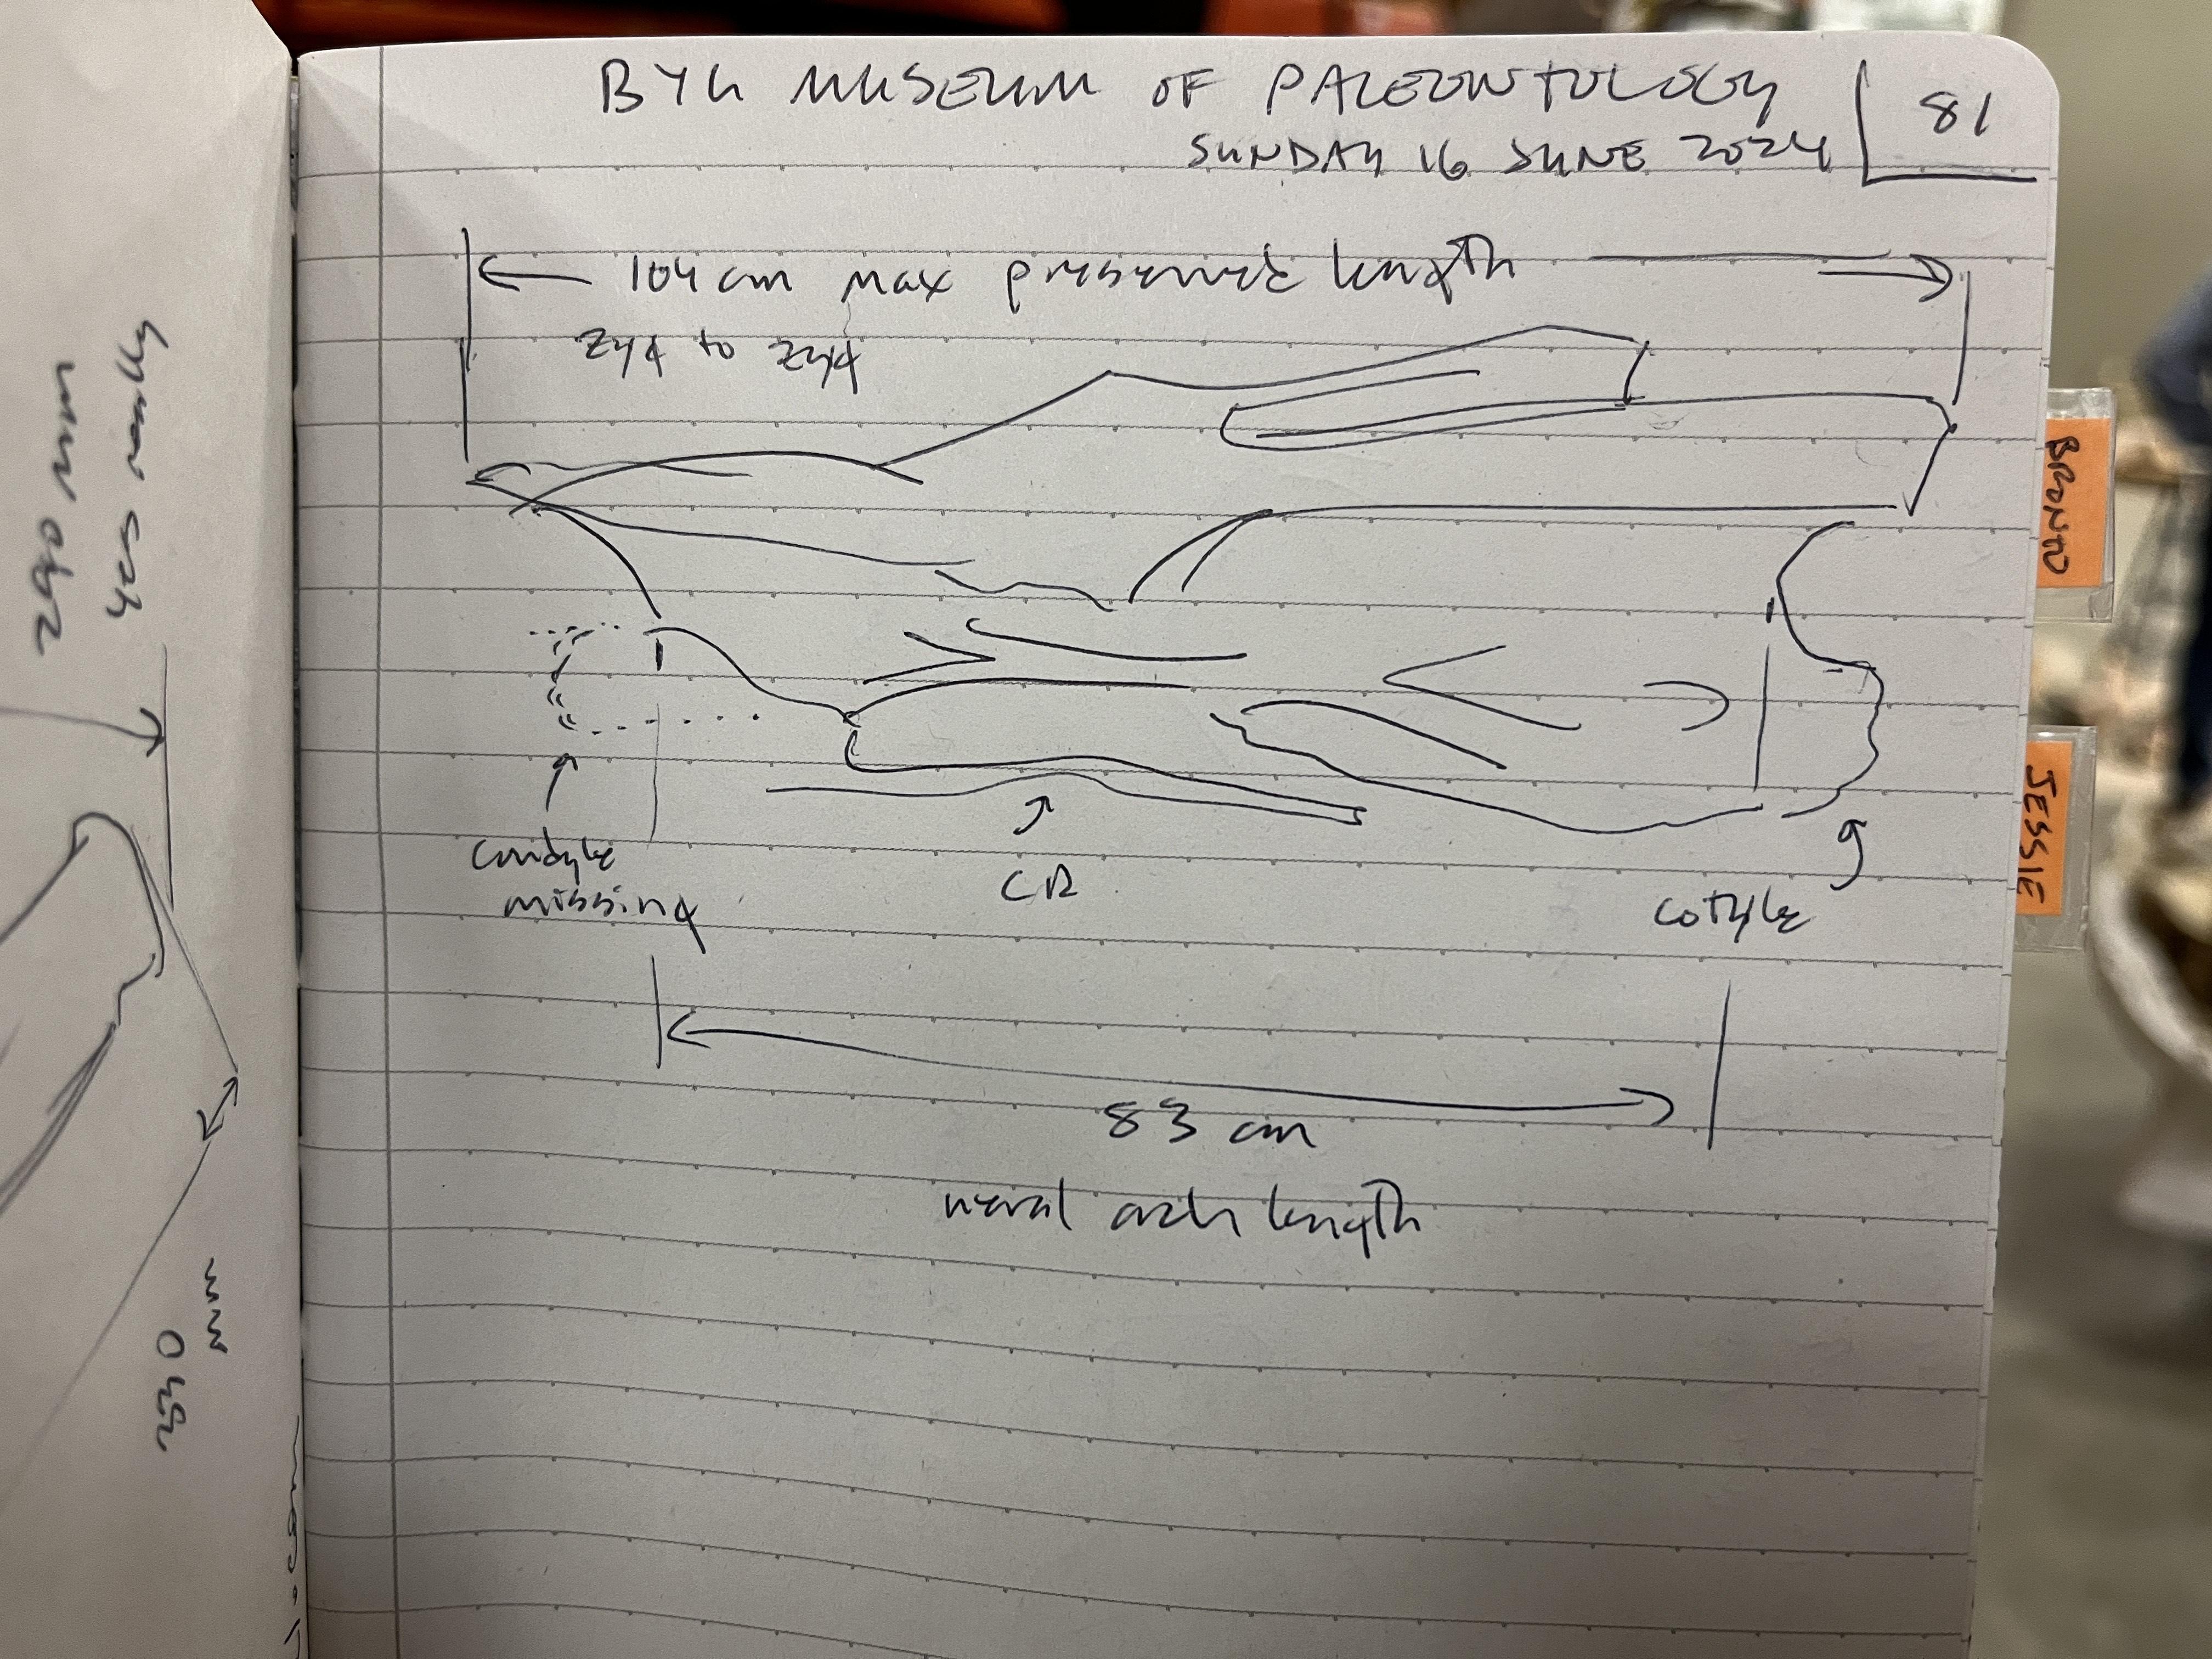 BYU MUSEUM OF PALEONTOLOGY
SUNDAY 16 JUNE 2024
81
104 cm max preserved length
zyg to zyg
condyle
missing
CR
cotyle
83 cm
neural arch length
BRONTO
JESSIE
mm
mm